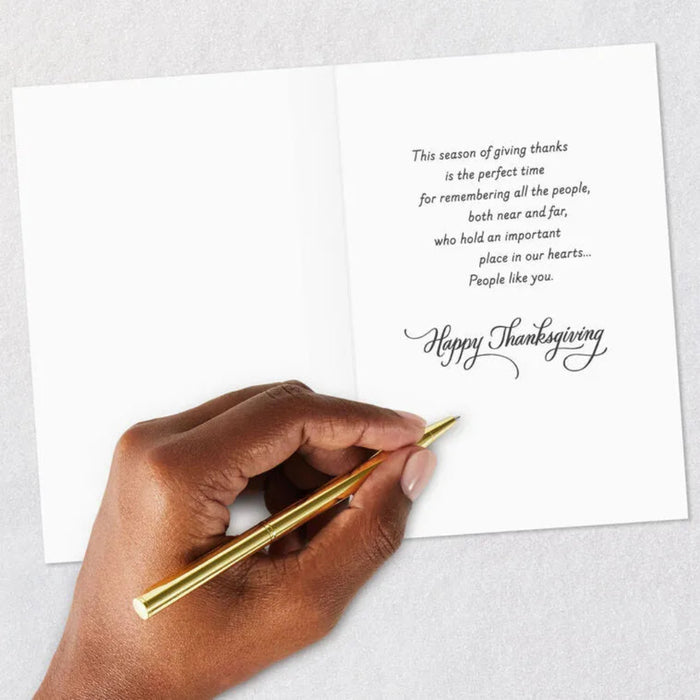 This season of giving thanks
is the perfect time
for remembering all the people,
both near and far,
who hold an important
place in our hearts...
People like you.
Happy Thanksgiving